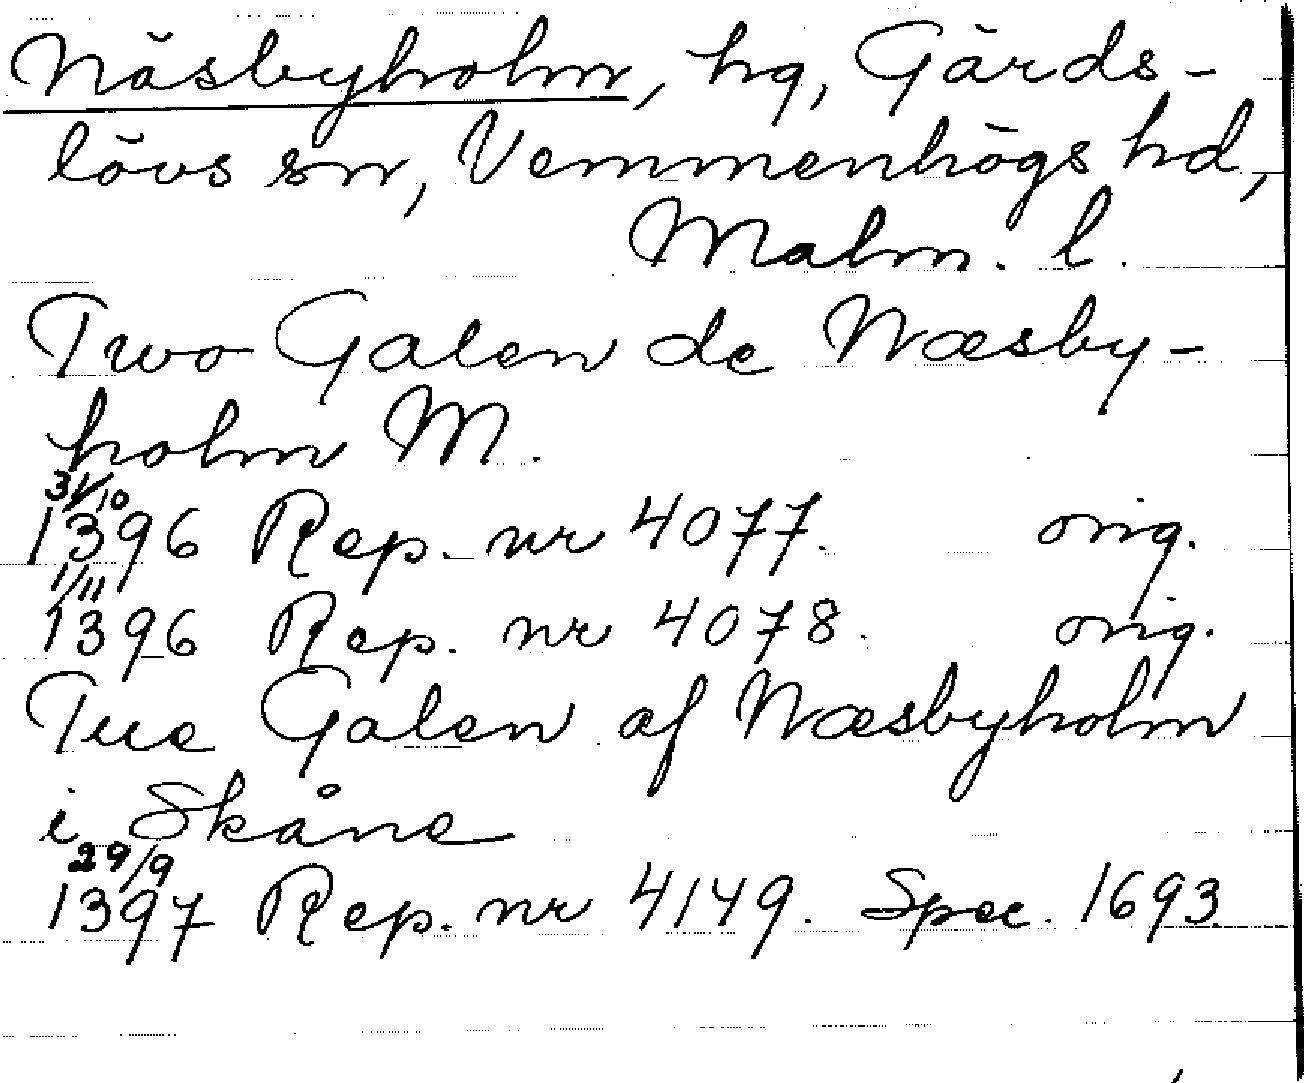 Näsbyholm, hg, Gärds-
lövs sn, Vemmenhögs hd,
Malm. l.
Two Galen de Næsby-
holm M.
31/10
1396 Rep. nr 4077. orig.
1/11
1396 Rep. nr 4078. orig.
Tue Galen af Næsbyholm
i Skåne
29/9
1397 Rep. nr 4149. Spec. 1693.